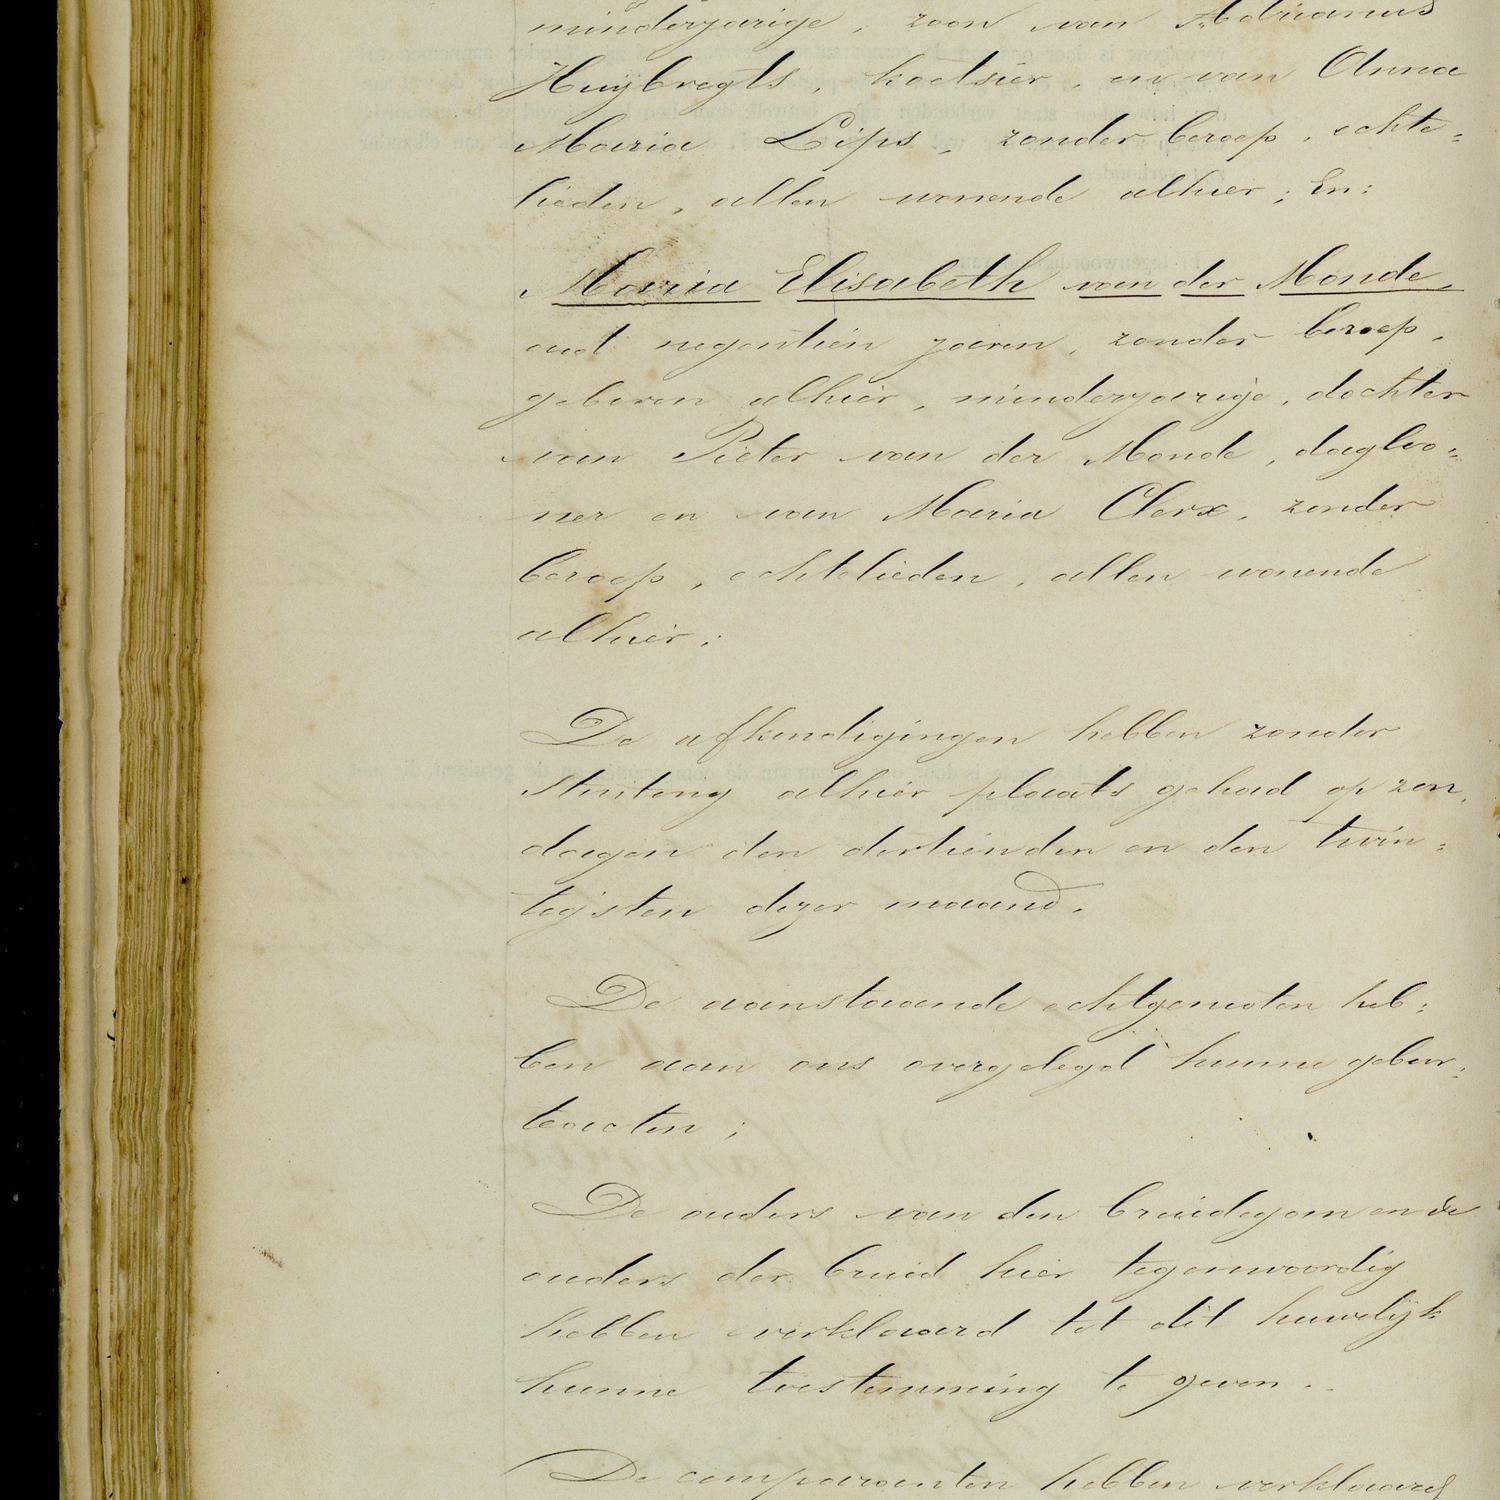 minderjarige, zoon van Adrianus
Huijbregts, koetsier, en van Anna
Maria Lips, zonder beroep, echte=
lieden, allen wonende alhier; En:
Maria Elisabeth van der Monde,
oud negentien jaren, zonder beroep,
geboren alhier, minderjarige, dochter
van Pieter van der Monde, dagloo=
ner en van Maria Clerx, zonder
beroep, echtelieden, allen wonende
alhier;
De afkondigingen hebben zonder
stuiting alhier plaats gehad op zon=
dagen den dertienden en den twin=
tigsten dezer maand.
De aanstaande echtgenooten heb=
ben aan ons overgelegd hunne geboor=
teacten;
De ouders van den bruidegom en de
ouders der bruid hier tegenwoordig
hebben verklaard tot dit huwelijk
hunne toestemming te geven.
De comparanten hebben verklaard